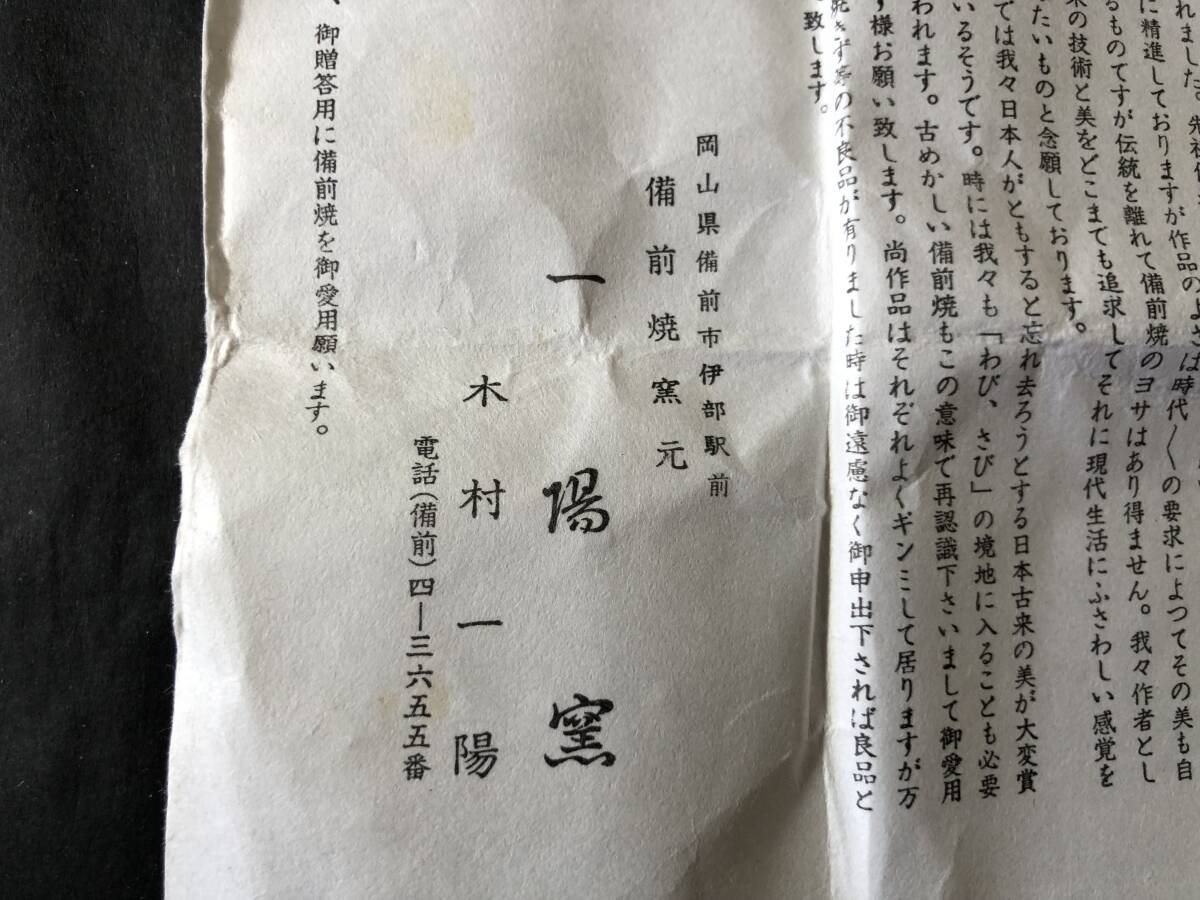 れました。先祖
に精進しておりますが作品のよさは時代〱の要求によつてその美も自
るものてすが伝統を離れて備前焼のヨサはあり得ません。我々作者とし
来の技術と美をどこまでも追求してそれに現代生活にふさわしい感覚を
たいものと念願しております。
では我々日本人がともすると忘れ去ろうとする日本古来の美が大変賞
いるそうです。時には我々も「わび、さび」の境地に入ることも必要
われます。古めかしい備前焼もこの意味で再認識下さいまして御愛用
す様お願い致します。尚作品はそれぞれよくギンミして居りますが万
焼きず等の不良品が有りました時は御遠慮なく御申出下されば良品と
致します。
岡山県備前市伊部駅前
備前焼窯元
一陽窯
木村一陽
電話(備前)四―三六五五番
、御贈答用に備前焼を御愛用願います。